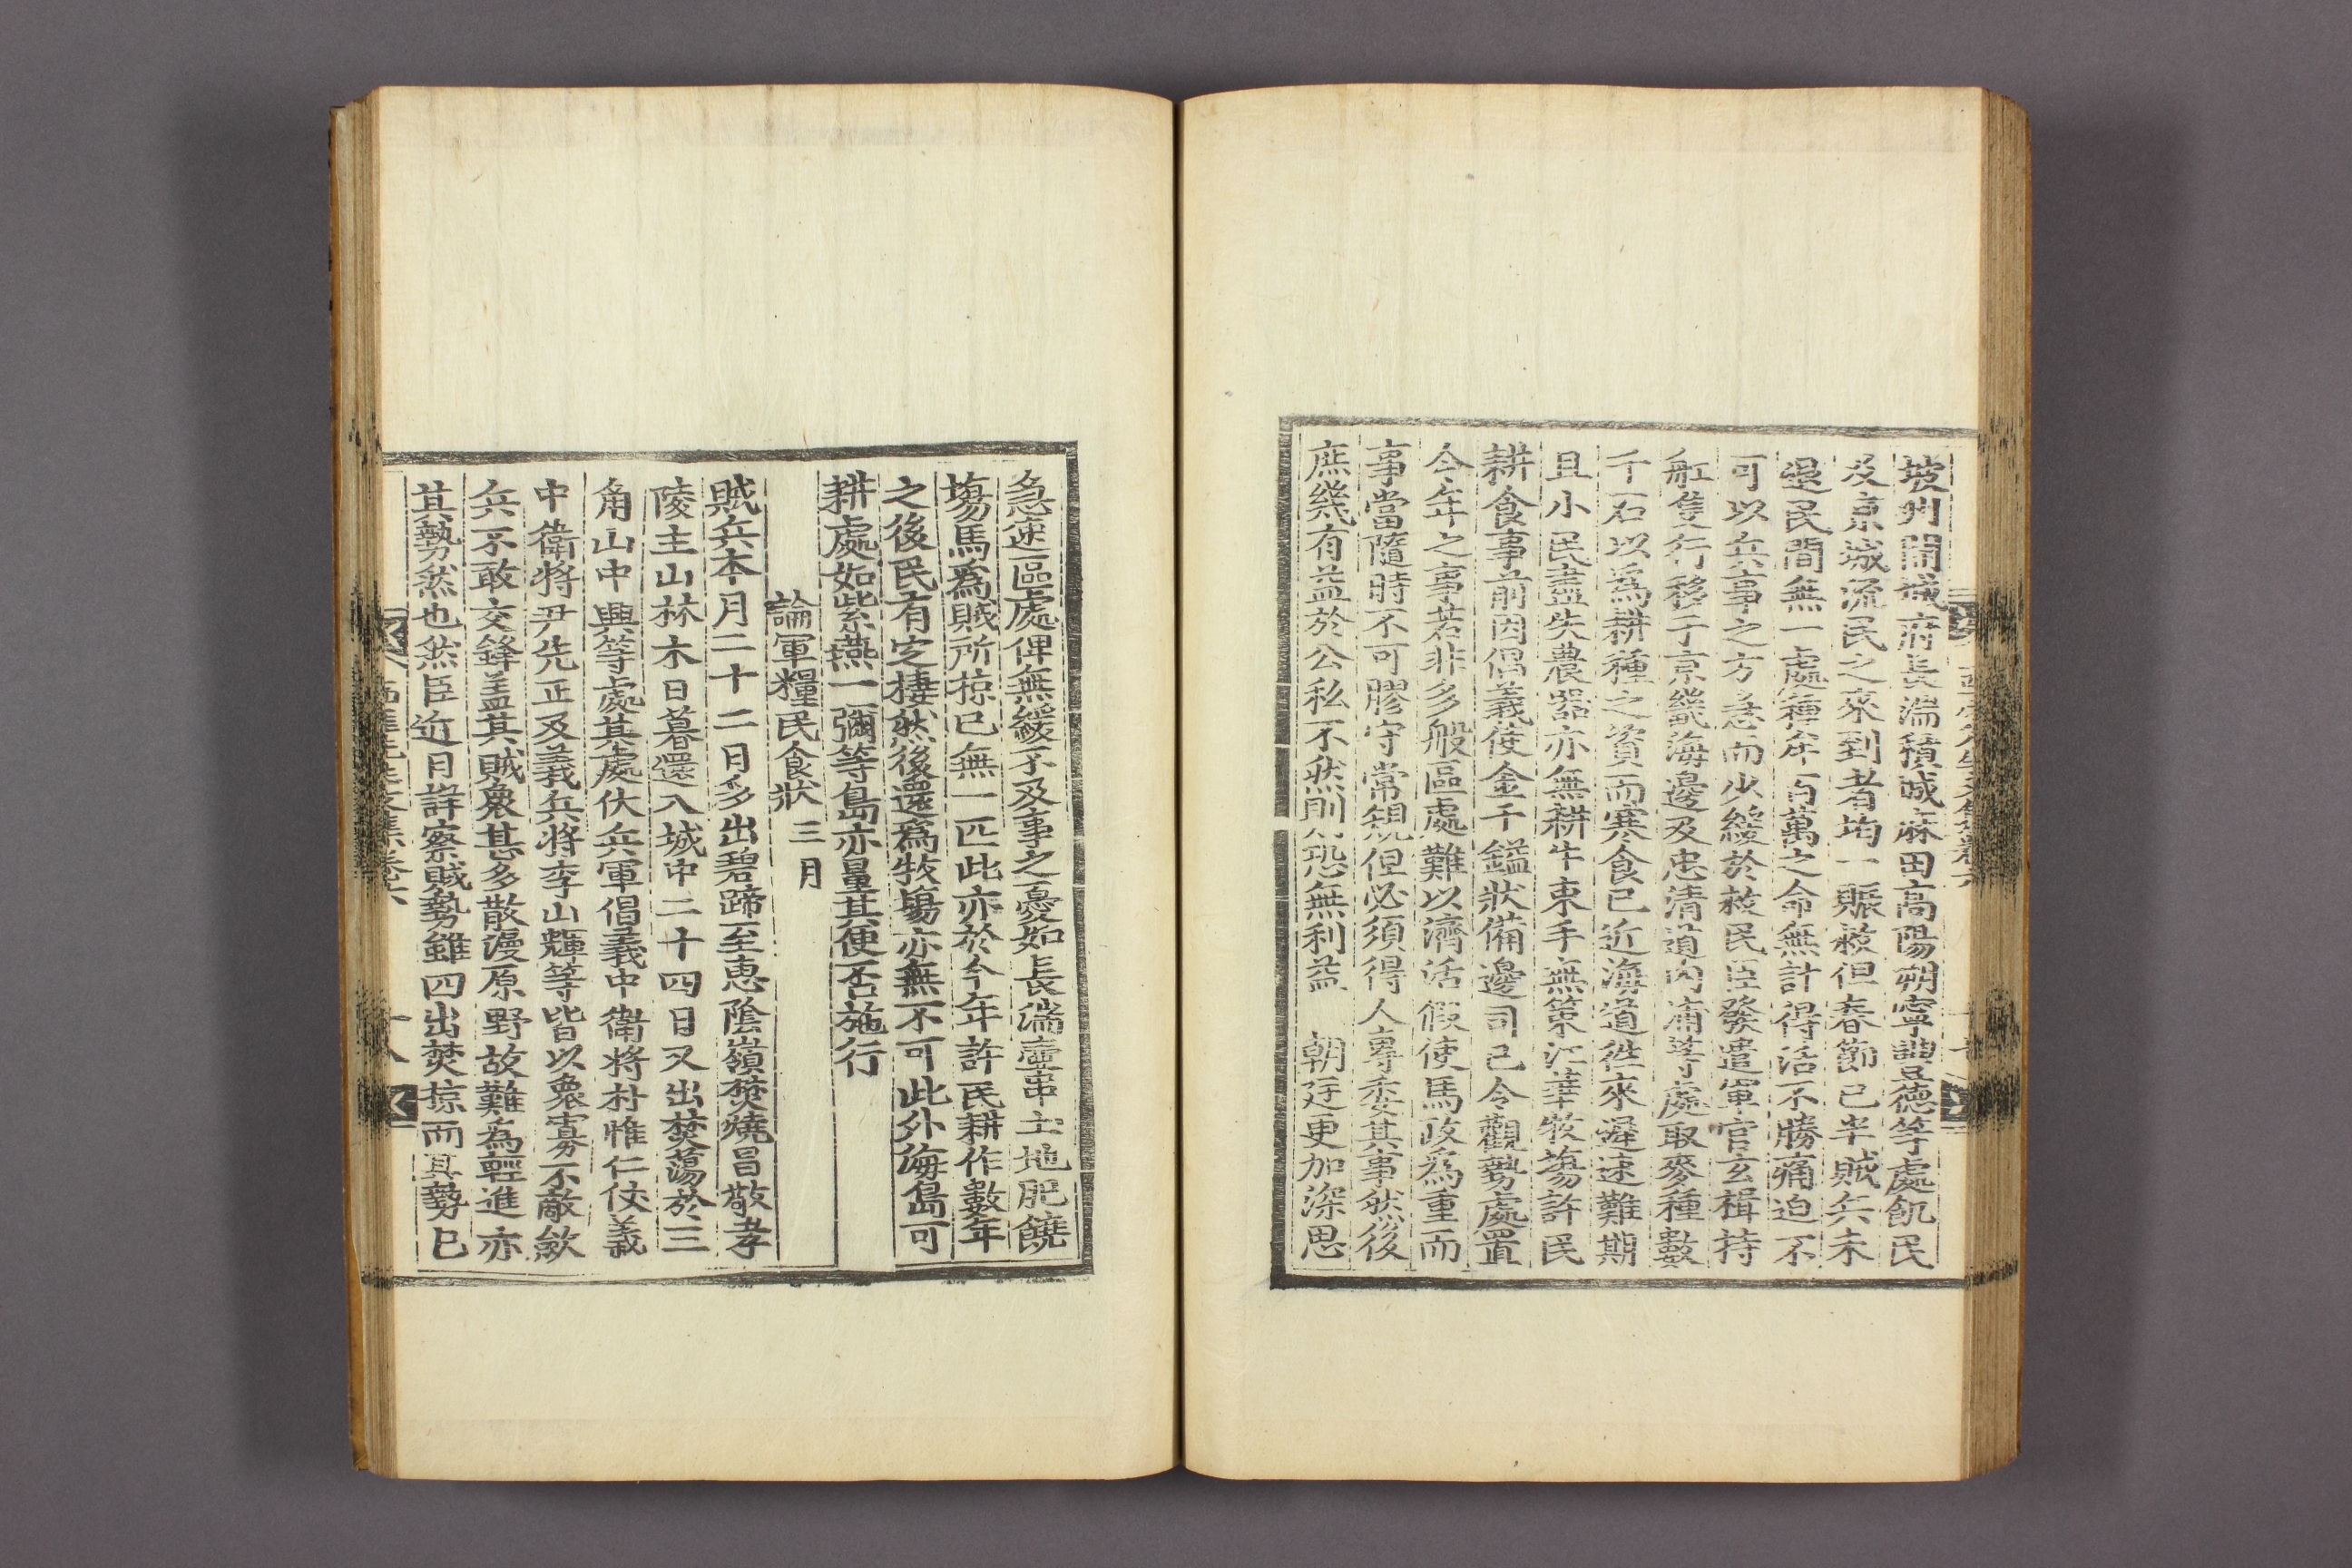 坡州開城府長湍積城麻田高陽朔寧豊德等處飢民
及京城流民之來到者均一賑救但春節已半賊兵未
退民間無一處種年百萬之命無計得活不勝痛迫不
可以兵事之方急而少緩於救民臣發遣軍官玄楫持
舡隻行移于京畿海邊及忠淸道內浦等處取麥種數
千石以爲耕種之資而寒食已近海道往來遲速難期
且小民盡失農器亦無耕牛束手無策江華牧場許民
耕食事前因倡義使金千鎰狀備邊司已令觀勢處置
今年之事若非多般區處難以濟活假使馬政爲重而
事當隨時不可膠守常規但必須得人專委其事然後
庶幾有益於公私不然則恐無利益 朝廷更加深思
急速區處俾無緩不及事之憂如長湍壺串土地肥饒
場馬爲賊所掠已無一匹此亦於今年許民耕作數年
之後民有定棲然後還爲牧場亦無不可此外海島可
耕處如紫燕一彌等島亦量其便否施行
論軍糧民食狀 三月
賊兵本月二十二日多出碧蹄至惠陰嶺焚燒昌敬孝
陵主山林木日暮還入城中二十四日又出焚蕩於三
角山中興等處其處伏兵軍倡義中衛將朴惟仁伏義
中衛將尹先正及義兵將李山輝等皆以衆寡不敵斂
兵不敢交鋒盖其賊衆甚多散漫原野故難爲輕進亦
其勢然也然臣近日詳察賊勢雖四出焚掠而其勢已
西厓先生文集卷六
十八